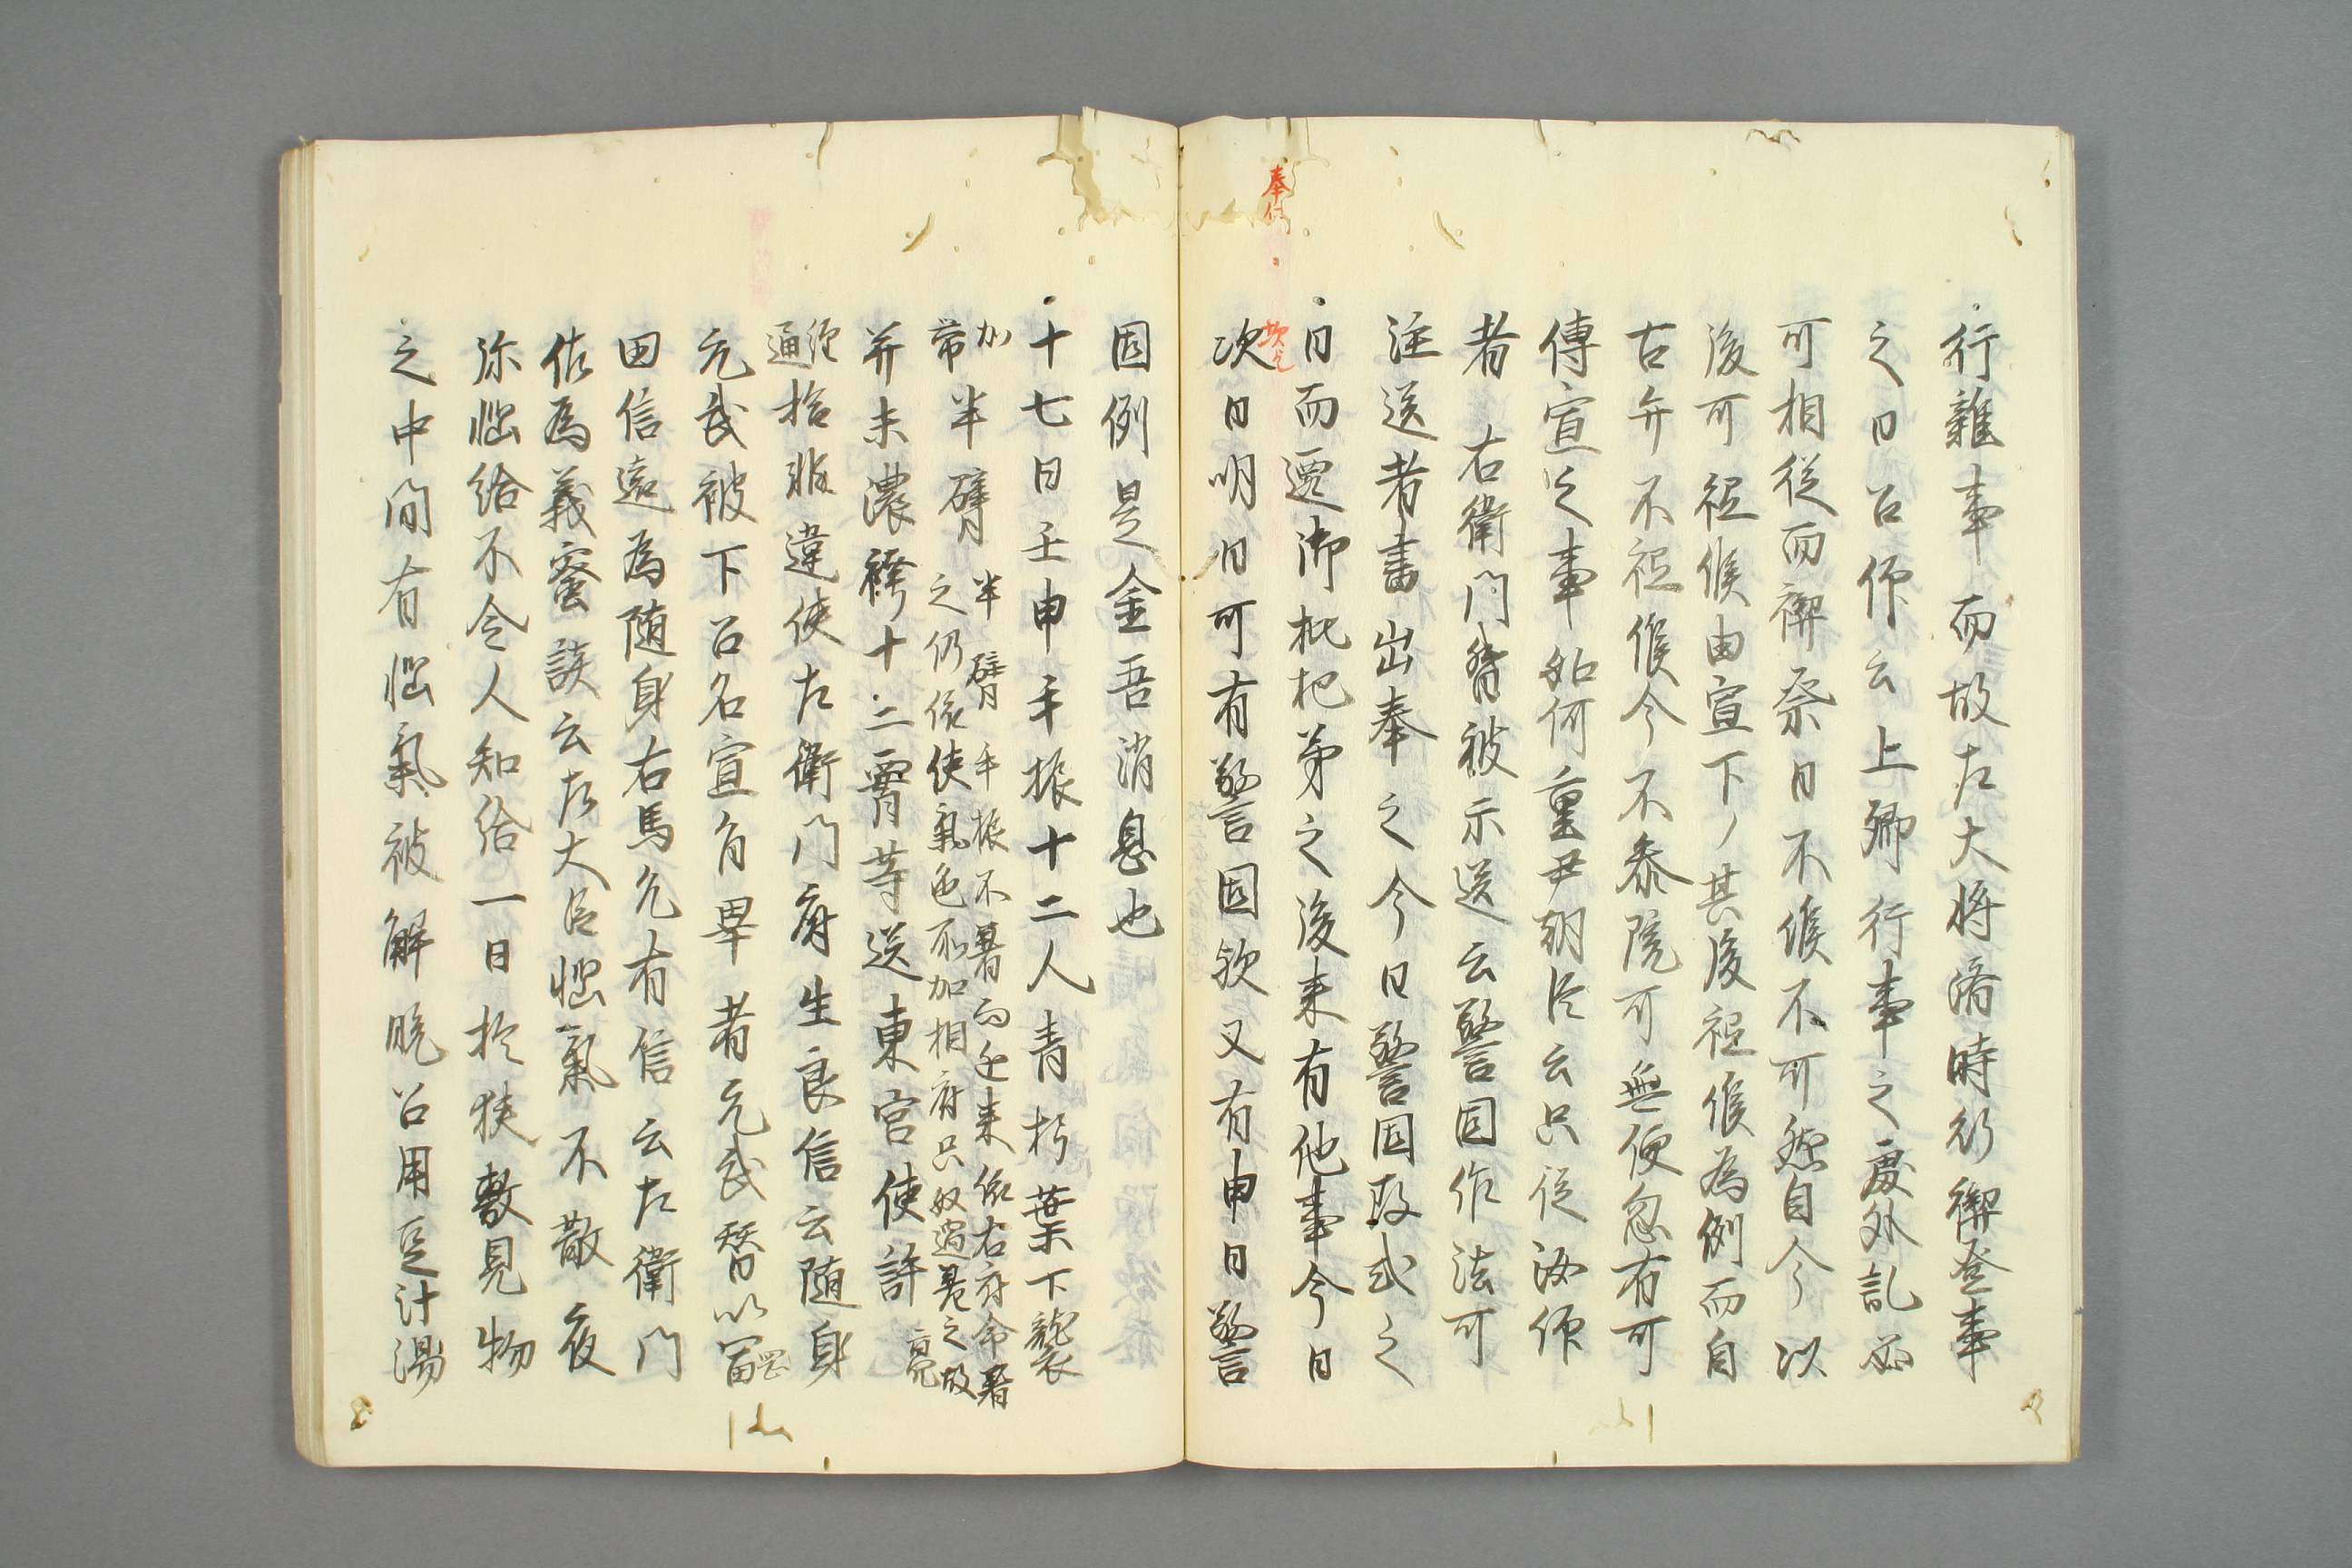 行雜事而故左大将済時行禊祭事
之日召仰云上卿行事之處外記必
可相従而禊祭日不候不可然自今以
後可祗候由宣下了其後祗候為例而自
古弁不祗候今不参院可無便忽有可
傳宣之事如何重尹朝臣云只従汝仰
者右衛門督被示送云警固作法可
注送者書出奉之今日警固改式之
日而遷御枇杷第之後未有他事今日
奉仕
次日明日可有警固欤又有申日警
固例是金吾消息也
十七日壬申手振十二人青朽葉下襲
加半臂半臂手振不著而近来依右府命著
帯之仍依使氣色不加相府只奴袴着之故
并末濃袴十二霄等送東宮使許亮
通経 捡非違使左衛門府生良信云随身
元武被下召名宣旨畢者元武替以冨
田信遠為随身右馬允有信云左衛門
佐為義蜜談云左大臣惱氣不散夜
弥惱給不令人知給一日於狭敷見物
之中間有惱氣被解脱召用豆汁湯